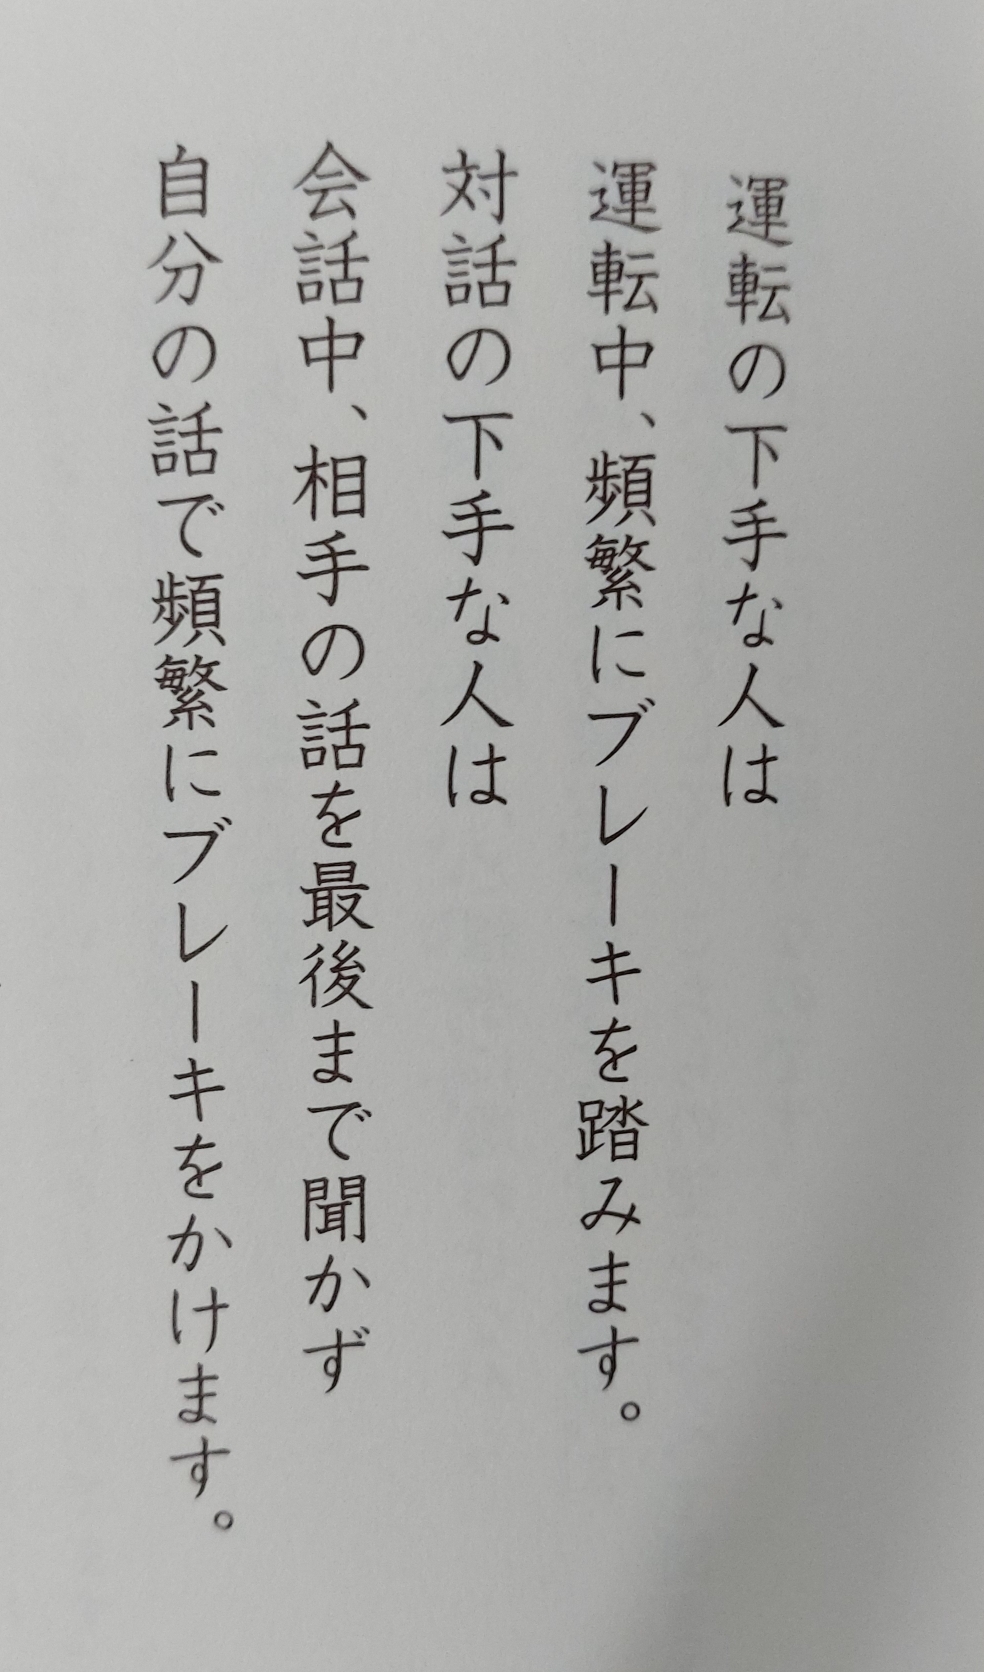 運転の下手な人は
運転中、頻繁にブレーキを踏みます。
対話の下手な人は
会話中、相手の話を最後まで聞かず
自分の話で頻繁にブレーキをかけます。